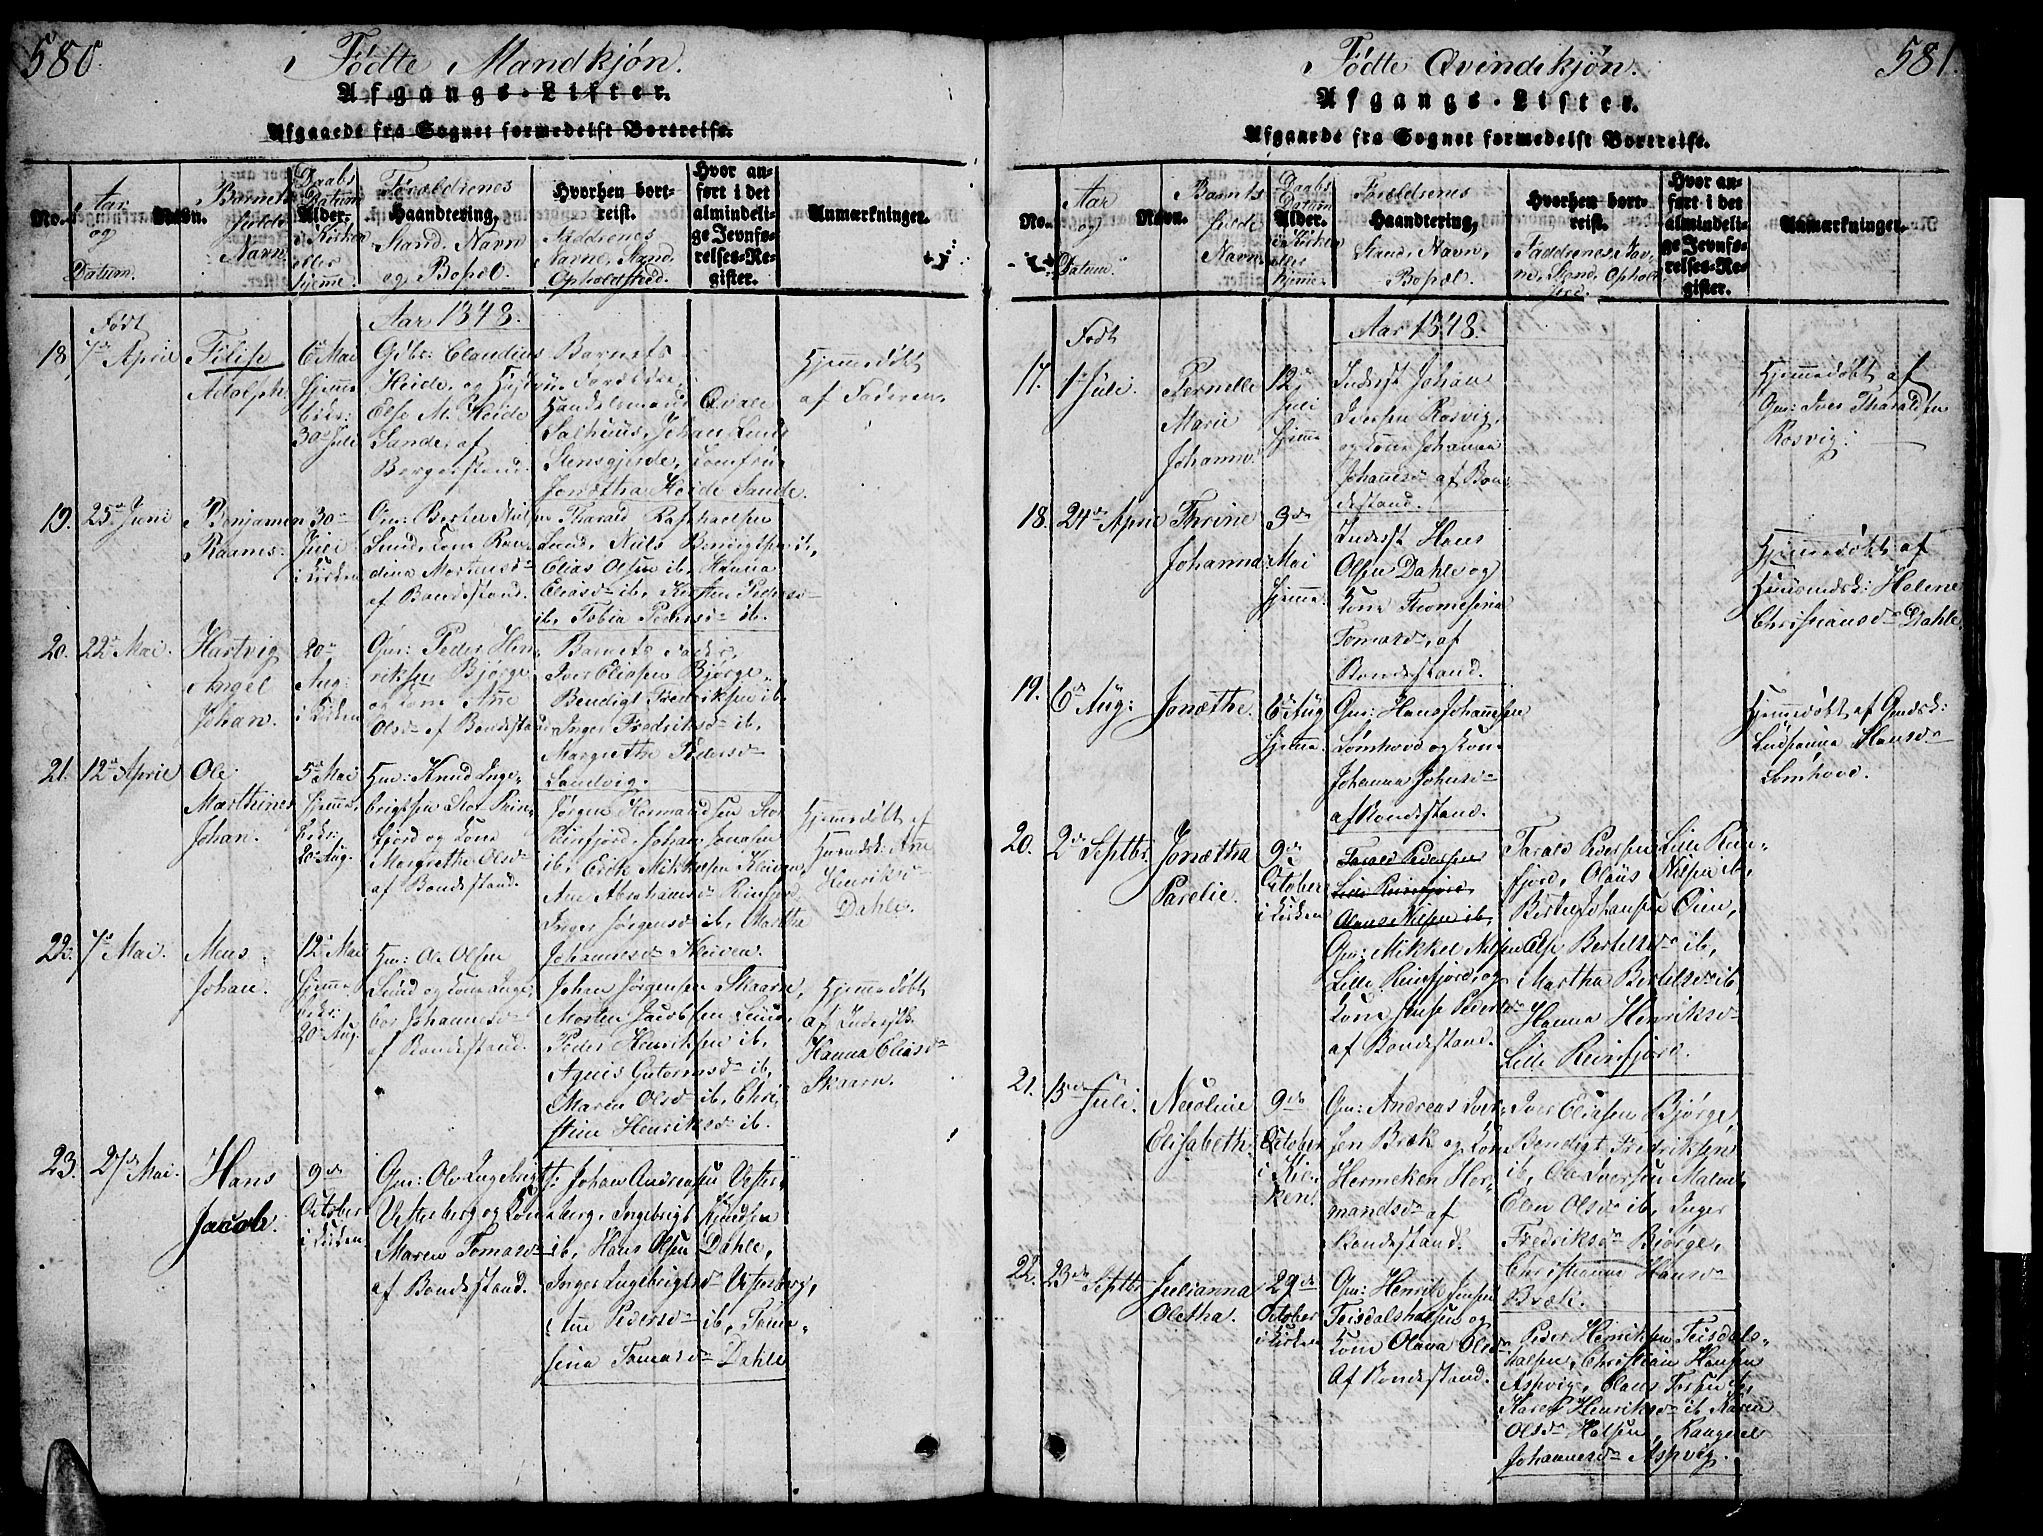 580.
Fødte Mandkjøn.
Afgangs-Lister.
Afgaaede fra Sognet formedelst Bortreise.
No.
Aar og Datum.
Navn.
Barnets fulde Navn
Daabs Datum
Alder.
i Kirken eller hjemme.
Forældrenes
Haandtering,
Stand, Navn
og Bopæl.
Hvorhen bortreist.
Faddrenes
Navne, Stand,
Opholdssted.
Hvor anført i det almindelige Jevnførelses-Register.
Anmærkninger.
Født
Aar 1848.
18. 7de April
Filip
Adolph.
6te Mai
hjemme
30 Juli
Heide, og
Else M. Heide
Sande, af
Borgerstand.
Barnets
Forældre,
Handelsmand Qvale
Salhuus, Johan Lund
Stensgjerde, Jomfru
Jonetha Heide Sande.
Hjemmedøbt
af Faderen.
19. 25de Juni
Benjamen
Raams.
30te
Juli
i Kirken
Gm: Berten Nilsen
Lund, Kone Ran-
dina Mortensd.
af Bondestand.
Tharald Rasthadsen
Lund, Niels Bendigtsen ib,
Elias Olsen ib, Hanna
Eliasd. ib, Kirsten Pedersd.
ib, Tobia Pedersd. ib.
20. 22de Mai.
Hartvig
Angel
Johan.
20de
Aug:
i Kirken
Gm: Peder Hen-
riksen Bjørge
og Kone Ane
Olsd. af Bondestand
Barnets Fader,
Iver Eliassen Bjørge,
Bendigt Fredriksen ib.
Inger Fredriksd. ib,
Margrethe Pedersd.
Sandvig.
21. 12de April
Ole
Marthines
Johan.
5te Mai
hjemme,
20de Aug.
Hm: Knud Inge-
brigtsen Stor Rein-
fjord og Kone
Margrethe Olsd.
af Bondestand.
Jørgen Hermandsen Stor
Reinfjord, Johan Jonasen
ib, Erik Mikkelsen Skeiven,
Ane Abrahamsd. Reinfjord,
Inger Jørgensd. ib, Martha
Johannesd. Skeiven.
Hjemmedøbt af
Huusmdsk: Ane
Henriksd.
Dahle.
22. 7de Mai.
Mons
Johan.
12te Mai
hjemme
20de Aug.
Hm: Ole Olsen
Lund og Kone Inge-
bor Johannesd.
af Bondestand.
Johan Jørgensen Skaarn,
Morten Jacobsen Lund,
Peder Henriksen ib,
Agnis Gutormsd. ib,
Maren Olsd. ib, Chri-
stine Henriksd. ib.
Hjemmedøbt
af Inderstk.
Hanna Eliasd.
Skaarn.
23. 27de Mai.
Hans
Jacob.
9de
October
i Kirken
Gm: Ole Ingebrigt:
Vesterberg og Kone
Maren Tomasd.
af Bondestand.
Johan Andreasen Vester-
berg, Ingebrigt Knudsen
ib, Hans Olsen Dahle,
Inger Ingebrigtsd. Vesterberg,
Ane Pedersd. ib, Toma-
sina Tomasd. Dahle
581.
Fødte Qvindekjøn.
Afgangs-Lister.
Afgaaede fra Sognet formedelst Bortreise.
No.
Aar og Datum.
Navn.
Barnets fulde Navn
Daabs Datum
Alder.
i Kirken eller hjemme.
Forældrenes
Haandtering,
Stand, Navn,
Bopæl.
Hvorhen bortreist.
Faddrenes Nav-
n, Stand, Ophold-
sted.
Hvor anført i det almindelige Jevnførelses-Register.
Anmærkninger.
Født
Aar 1848.
17. 1de Juli.
Pernelle
Marie
Johanna.
12te
Juli
hjemme
Inderst Johan
Iversen Rosvig,
og Kone Johanna
Johannesd. af Bon-
destand.
Hjemmedøbt af
Gm: Iver Tharaldsen
Rosvig.
18. 24de April
Thrine
Johanna.
3de
Mai
hjemme.
Inderst Hans
Olsen Dahle og
Kone Thomesina
Tomasd. af
Bondestand.
Hjemmedøbt af
Huusmdsk: Helene
Christiansd. Dahle.
19. 6te Aug:
Jonæthe.
6te Aug
hjemme.
Gm: Hans Johannesen
Lomhove og Kon
Johanna Johnsd.
af Bondestand.
Hjemmedøbt af Gmdsk:
Hansd.
Lomhove.
20. 2de Septbr
Jonætha
Parelie.
9de
October
i Kirken
Tarald Pedersen
Lille Reinfjord,
Olaus Nilsen ib,
Gm: Mikkel Nilsen
Lille Reinfjord, og
Kone Pedersd.
af Bondestand.
Tarald Pedersen Lille Rein-
fjord, Olaüs Nilsen ib,
Berten Johansen Øien,
Else Bertelsd. ib,
Martha Bertelsd. ib,
Hanna Henriksd.
Lille Reinfjord.
21. 15de Juli.
Nicoline
Elisabeth.
9de
October
i Kir-
ken.
Gm: Andreas Iver-
sen Bræk og Kon
Hermeken Her-
mandsd. af
Bondestand.
Iver Eliasen Bjørge,
Bendigt Fredriksen
ib, Ole Iversen Malm,
Elen Olsd. ib, Inger
Fredriksd. Bjørge,
Christianna Hansd.
Bræk.
22. 23de Septbr
Julianna
Oletha.
29de
October
i Kirken
Gm: Henrik Jensen
Teisdalshalsen og
Kone Olava Olsd.
Af Bondestand.
Peder Henriksen Teisdals-
halsen, Christian Hansen
Aspvig, Claus Torsen ib,
Karen Henriksd. ib, Karen
Olsd. Halsen, Rangnel
Johannesd. Aspvig.